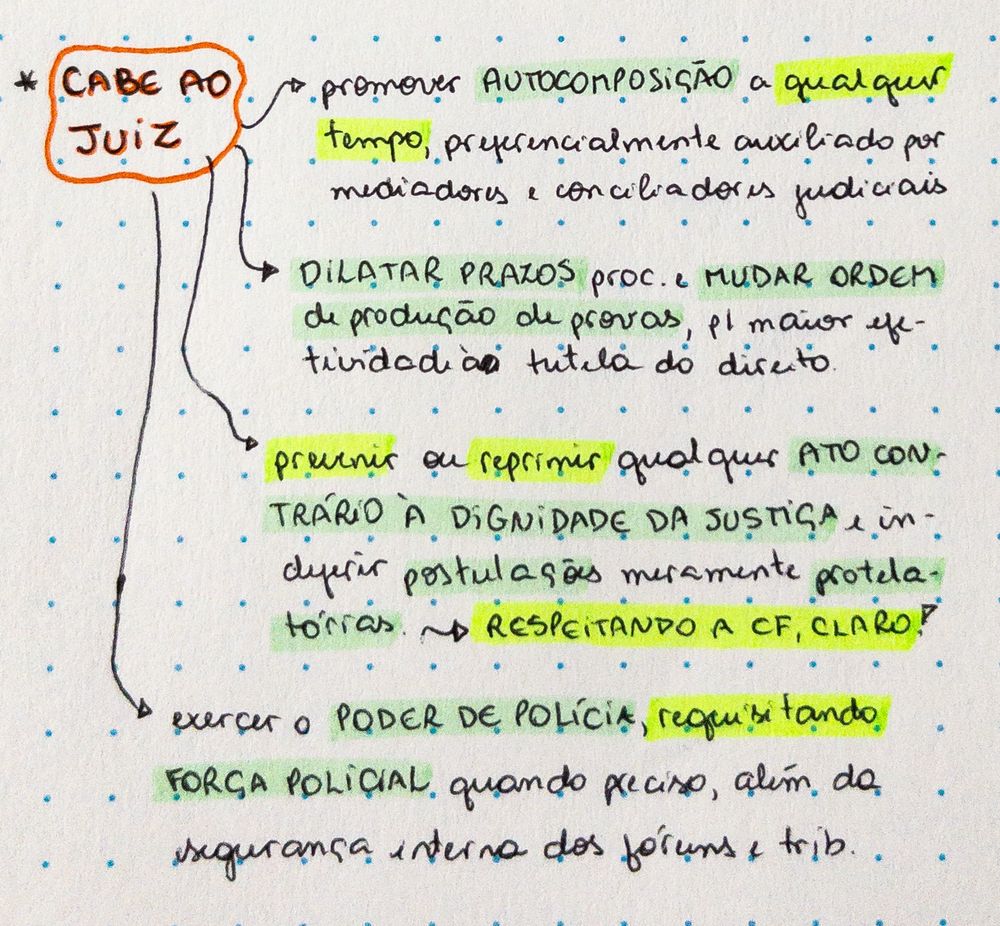 * CABE AO
JUIZ
promover AUTOCOMPOSIÇÃO a qualquer
tempo, preferencialmente auxiliado por
mediadores e conciliadores judiciais
DILATAR PRAZOS proc. e MUDAR ORDEM
de produção de provas, p/ maior efe-
tividade à tutela do direito.
prevenir ou reprimir qualquer ATO CON-
TRÁRIO À DIGNIDADE DA JUSTIÇA e in-
deferir postulações meramente protela-
tórias. → RESPEITANDO A CF, CLARO!
exercer o PODER DE POLÍCIA, requisitando
FORÇA POLICIAL quando preciso, além da
segurança interna dos fóruns e trib.